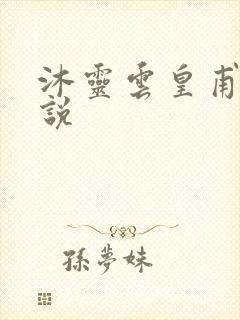 沐靈雲皇甫
說
孫夢妹